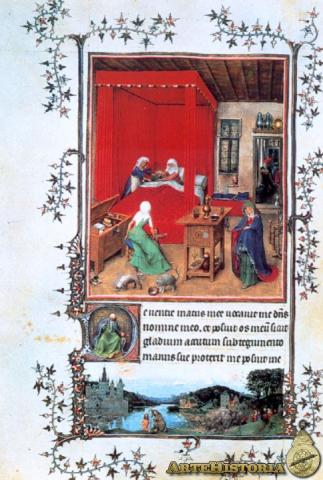 De uentre matris mee uocauit me dñs
nomine meo. et posuit os meũ sicut
gladium acutum sub tegumento
manus sue protexit me posuit me
ARTEHISTORIA